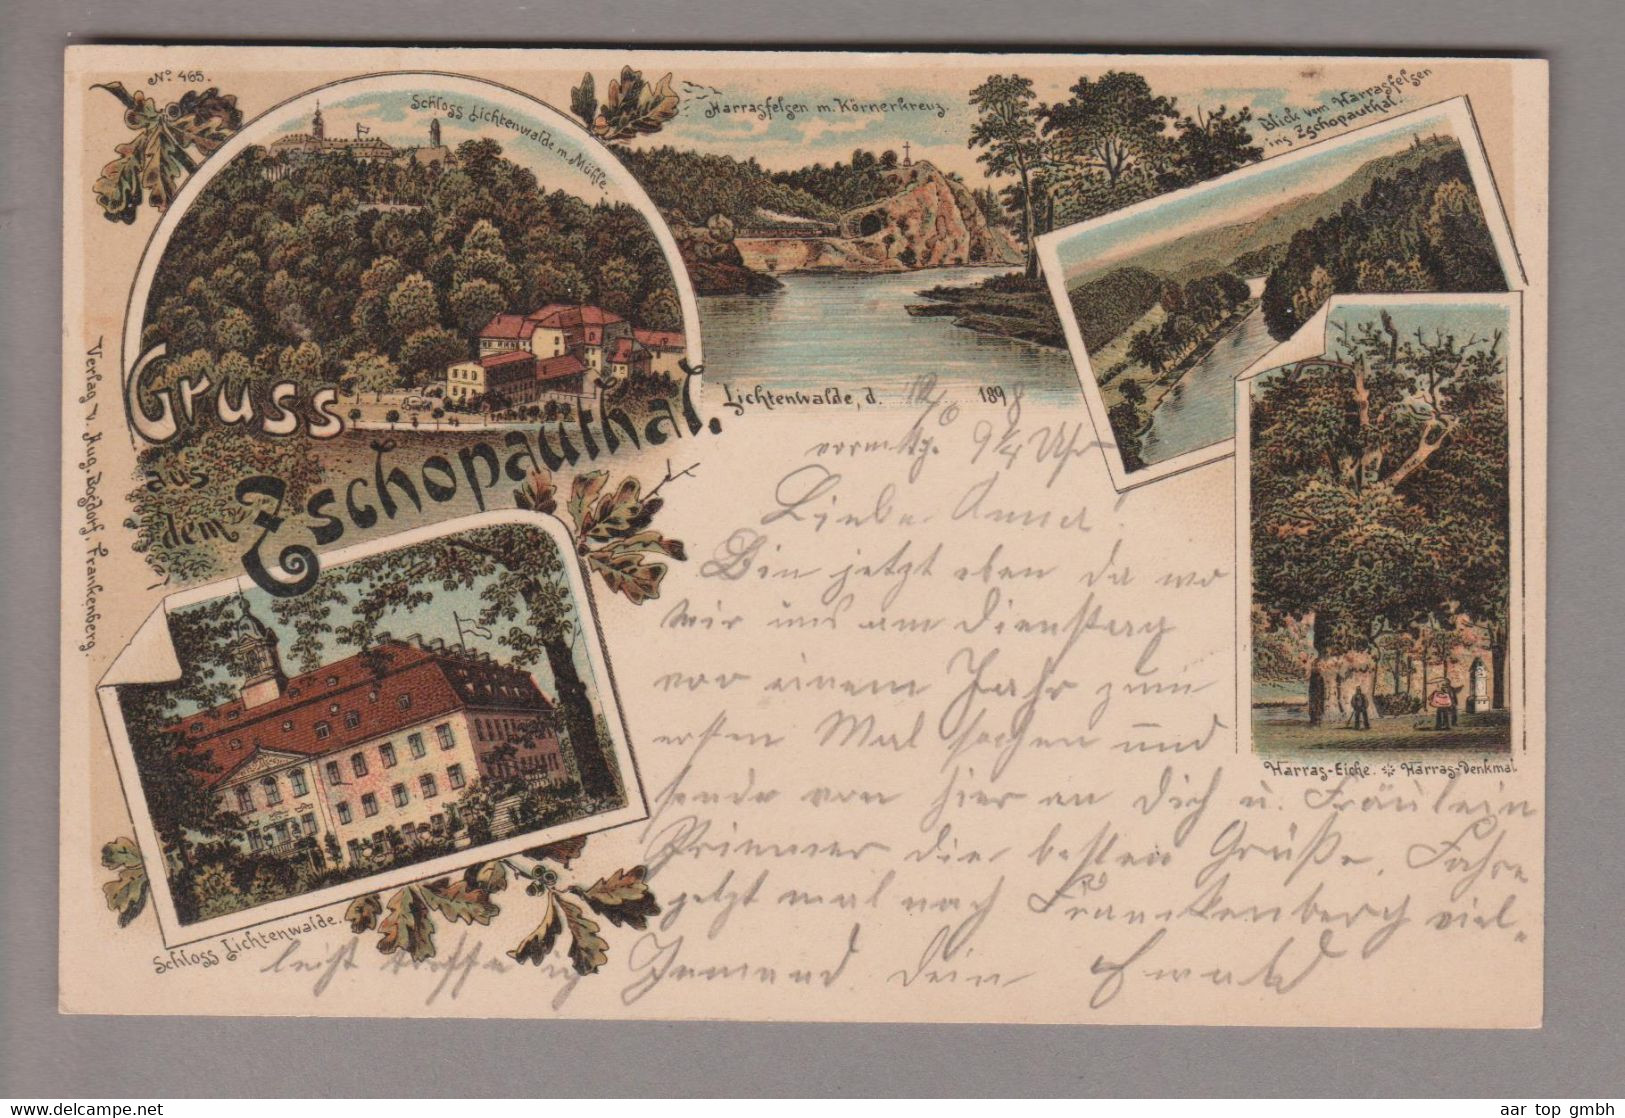 No. 465.
Schloss Lichtenwalde m. Mühle.
Harrasfelsen m. Körnerkreuz.
Blick vom Harrasfelsen
ins Zschopauthal.
Gruss
aus
dem Zschopauthal.
Verlag v. Aug. Bogdorf, Frankenberg.
Lichtenwalde, d. 12/6 1898
vormttg. 9 1/4 Uhr
Liebe Anna
Bin jetzt eben da wo
wir uns am Dienstag
vor einem Jahr zum
ersten Mal sahen und
sende von hier an Dich u. Fräulein
die besten Grüße. Fahre
jetzt mal nach Franckenberg viel-
leicht treffe ich Jemand. Dein Ewald
Harras-Eiche. Harras-Denkmal
Schloss Lichtenwalde.
aar top gmbh